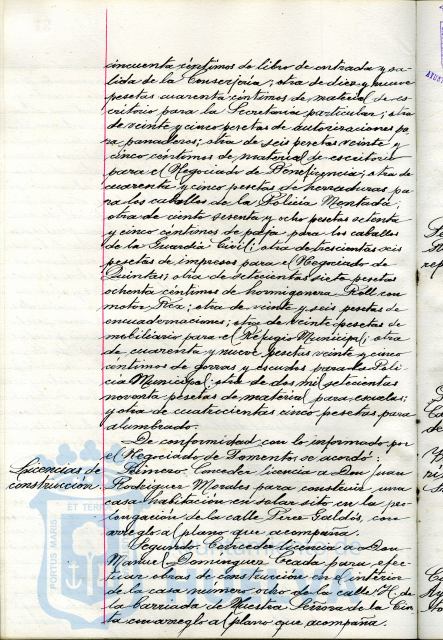 cincuenta céntimos de libro de entrada y sa-
lida de la Conserjería; otra de diez y nueve
pesetas cuarenta céntimos de material de es-
critorio para la Secretaría particular; otra
de veinte y cinco pesetas de autorizaciones pa-
ra panaderos; otra de seis pesetas veinte y
cinco céntimos de material de escritorio
para el Negociado de Beneficencia; otra de
cuarenta y cinco pesetas de herraduras pa-
ra los caballos de la Policía Montada;
otra de ciento sesenta y ocho pesetas setenta
y cinco céntimos de paja para los caballos
de la Guardia Civil; otra de trescientas seis
pesetas de impresos para el Negociado de
Quintas; otra de setecientas siete pesetas
ochenta céntimos de hormigonera Roll con
motor Rex; otra de veinte y seis pesetas de
encuadernaciones; otra de veinte pesetas de
mobiliario para el Refugio Municipal; otra
de cuarenta y nueve pesetas veinte y cinco
céntimos de gorras y escudos para la Poli-
cía Municipal; otra de dos mil setecientas
noventa pesetas de material para escuelas;
y otra de cuatrocientas cinco pesetas para
alumbrado.
De conformidad con lo informado por
el Negociado de Fomento, se acordó:
Licencias de
construcción.
Primero. Conceder licencia a Don Juan
Rodríguez Morales para construir una
casa habitación en solar sito en la pro-
longación de la calle Pérez Galdós, con
arreglo al plano que acompaña.
Segundo. Conceder licencia a Don
Manuel Domínguez Ceada para efec-
tuar obras de construcción en el interior
de la casa número ocho de la calle H. de
la barriada de Nuestra Señora de la Cin-
ta con arreglo al plano que acompaña.
PORTUS MARIS
ET TERRAE
Ayuntamiento de